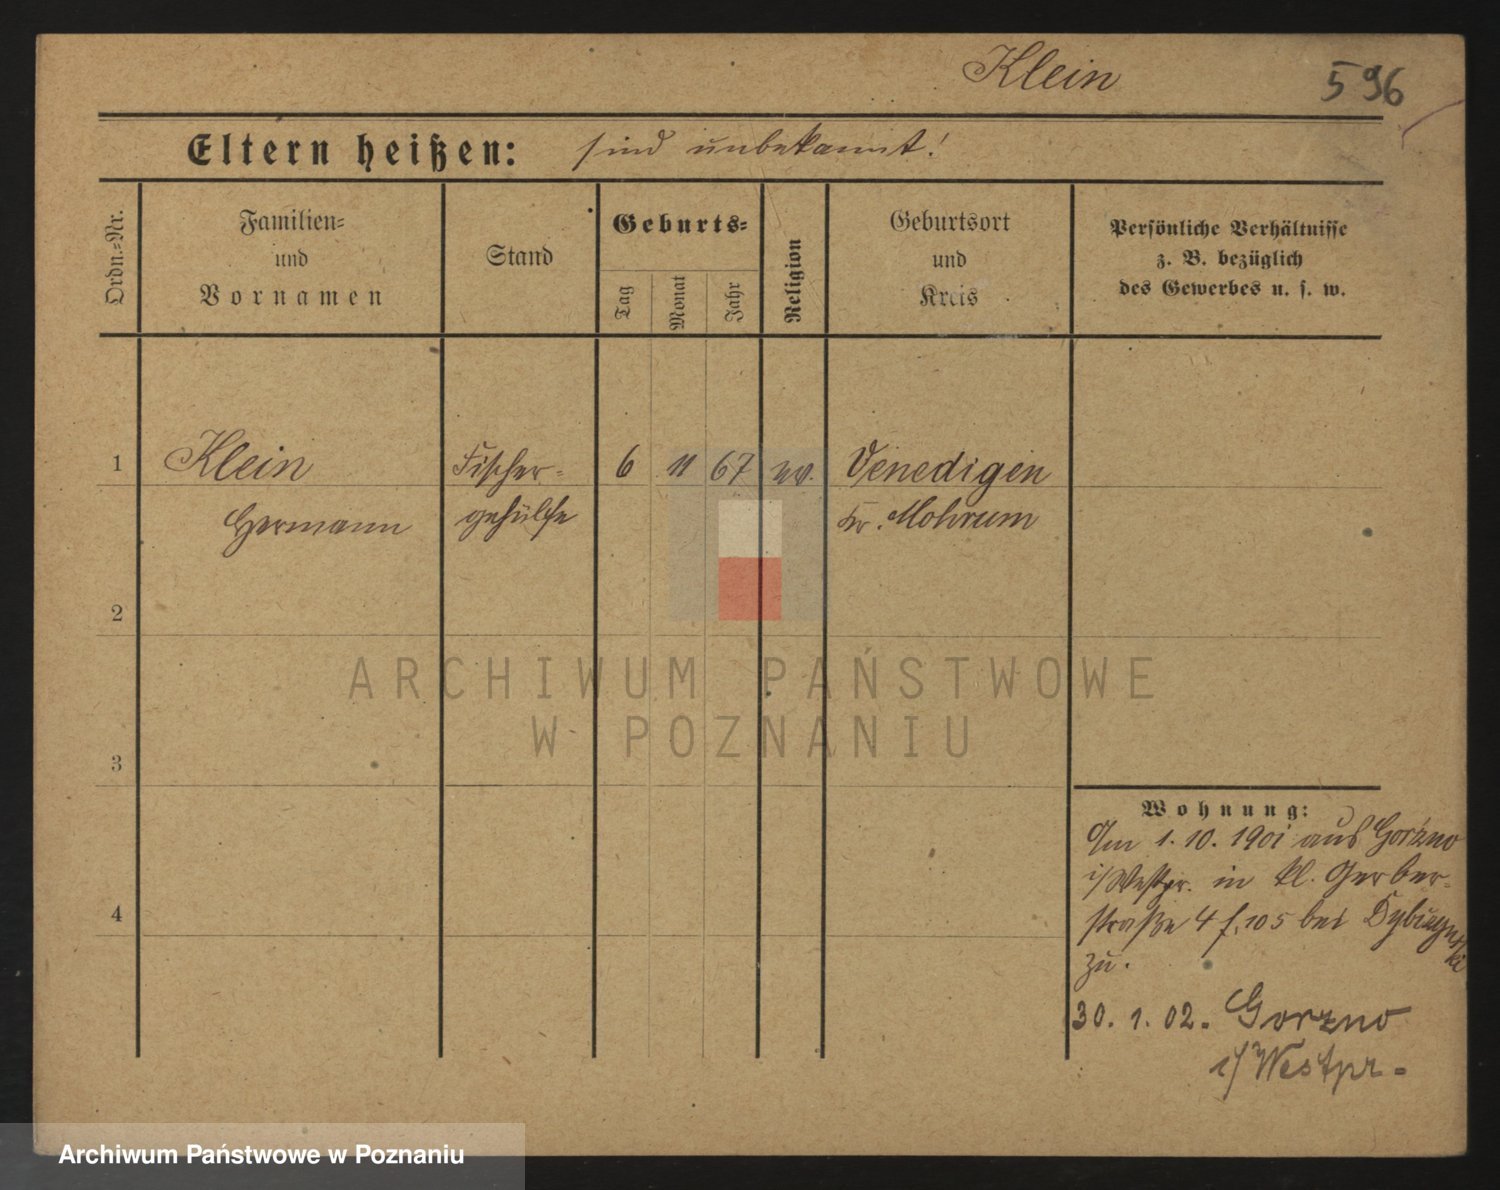 Klein
596
Eltern heißen: sind unbekannt!
Ordn.=Nr.
Familien=
und
Vornamen
Stand
Geburts=
Tag
Monat
Jahr
Religion
Geburtsort
und
Kreis
Persönliche Verhältnisse
z. B. bezüglich
des Gewerbes u. s. w.
1 Klein Fischer= 6 11 67 ev. Venedigen
Hermann gehülfe Kr. Mohrum
2
3
4
ARCHIWUM PAŃSTWOWE
W POZNANIU
Wohnung:
Am 1. 10. 1901 aus Gorzno
i/Westpr. in kl. Gerber=
straße 4 f. 105 bei
zu.
30. 1. 02. Gorzno
i/Westpr.
Archiwum Państwowe w Poznaniu